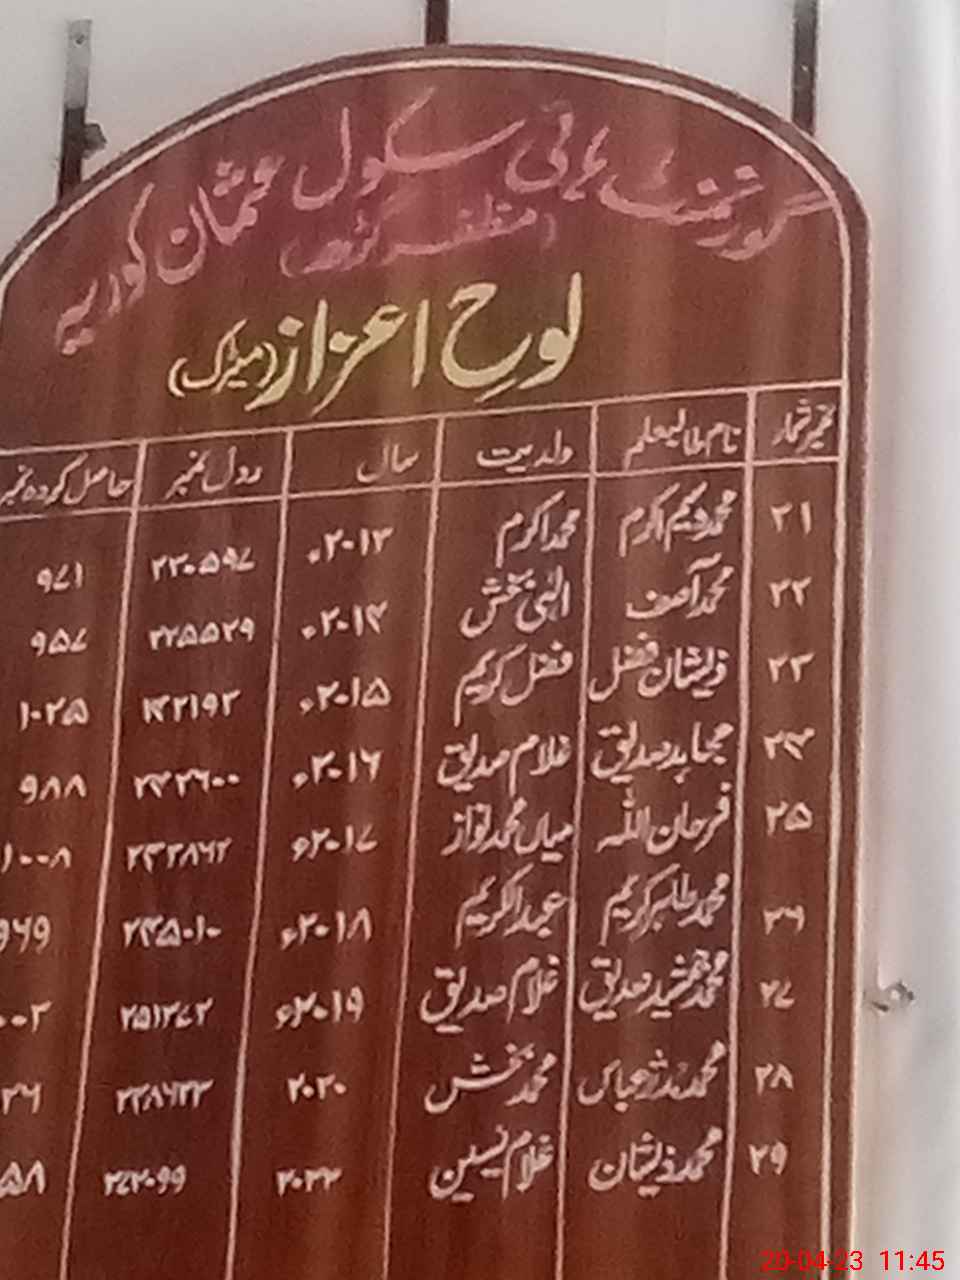 گورنمنٹ ہائی سکول عثمان کوریہ
(مظفر گڑھ)
لوح اعزاز (میٹرک)
نمبر شمار نام طالبعلم ولدیت سال رول نمبر حاصل کردہ نمبر
۲۱ محمد وسیم اکرم محمد اکرم ۲۰۱۳ء ۲۳۰۵۹۷ ۹۷۱
۲۲ محمد آصف الٰہی بخش ۲۰۱۴ء ۲۲۵۵۲۹ ۹۵۷
۲۳ ذیشان فضل فضل کریم ۲۰۱۵ء ۱۰۲۵
۲۴ مجاہد صدیق غلام صدیق ۲۰۱۶ء ۹۸۸
۲۵ فرحان اللہ میاں محمد نواز ۲۰۱۷ء ۱۰۰۸
۲۶ محمد طاہر کریم عبدالکریم ۲۰۱۸ء ۲۴۵۰۱۰ ۹۶۹
۲۷ محمد جمشید صدیق غلام صدیق ۲۰۱۹ء ۲۵۱۳۷۲ ۰۰۳
۲۸ محمد مدثر عباس محمد بخش ۲۰۲۰ ۳۶
۲۹ محمد ذیشان غلام یسین ۲۰۲۲ ۲۷۲۰۹۹ ۵۸
20-04-23 11:45